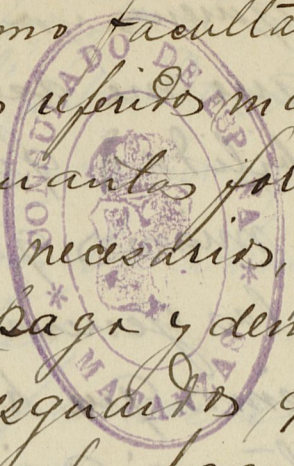 mo facultá
s referidos ma
uantos for
necesarios,
pago y dem
esguardos q
CONSULADO DE ESPAÑA
* MATANZAS *